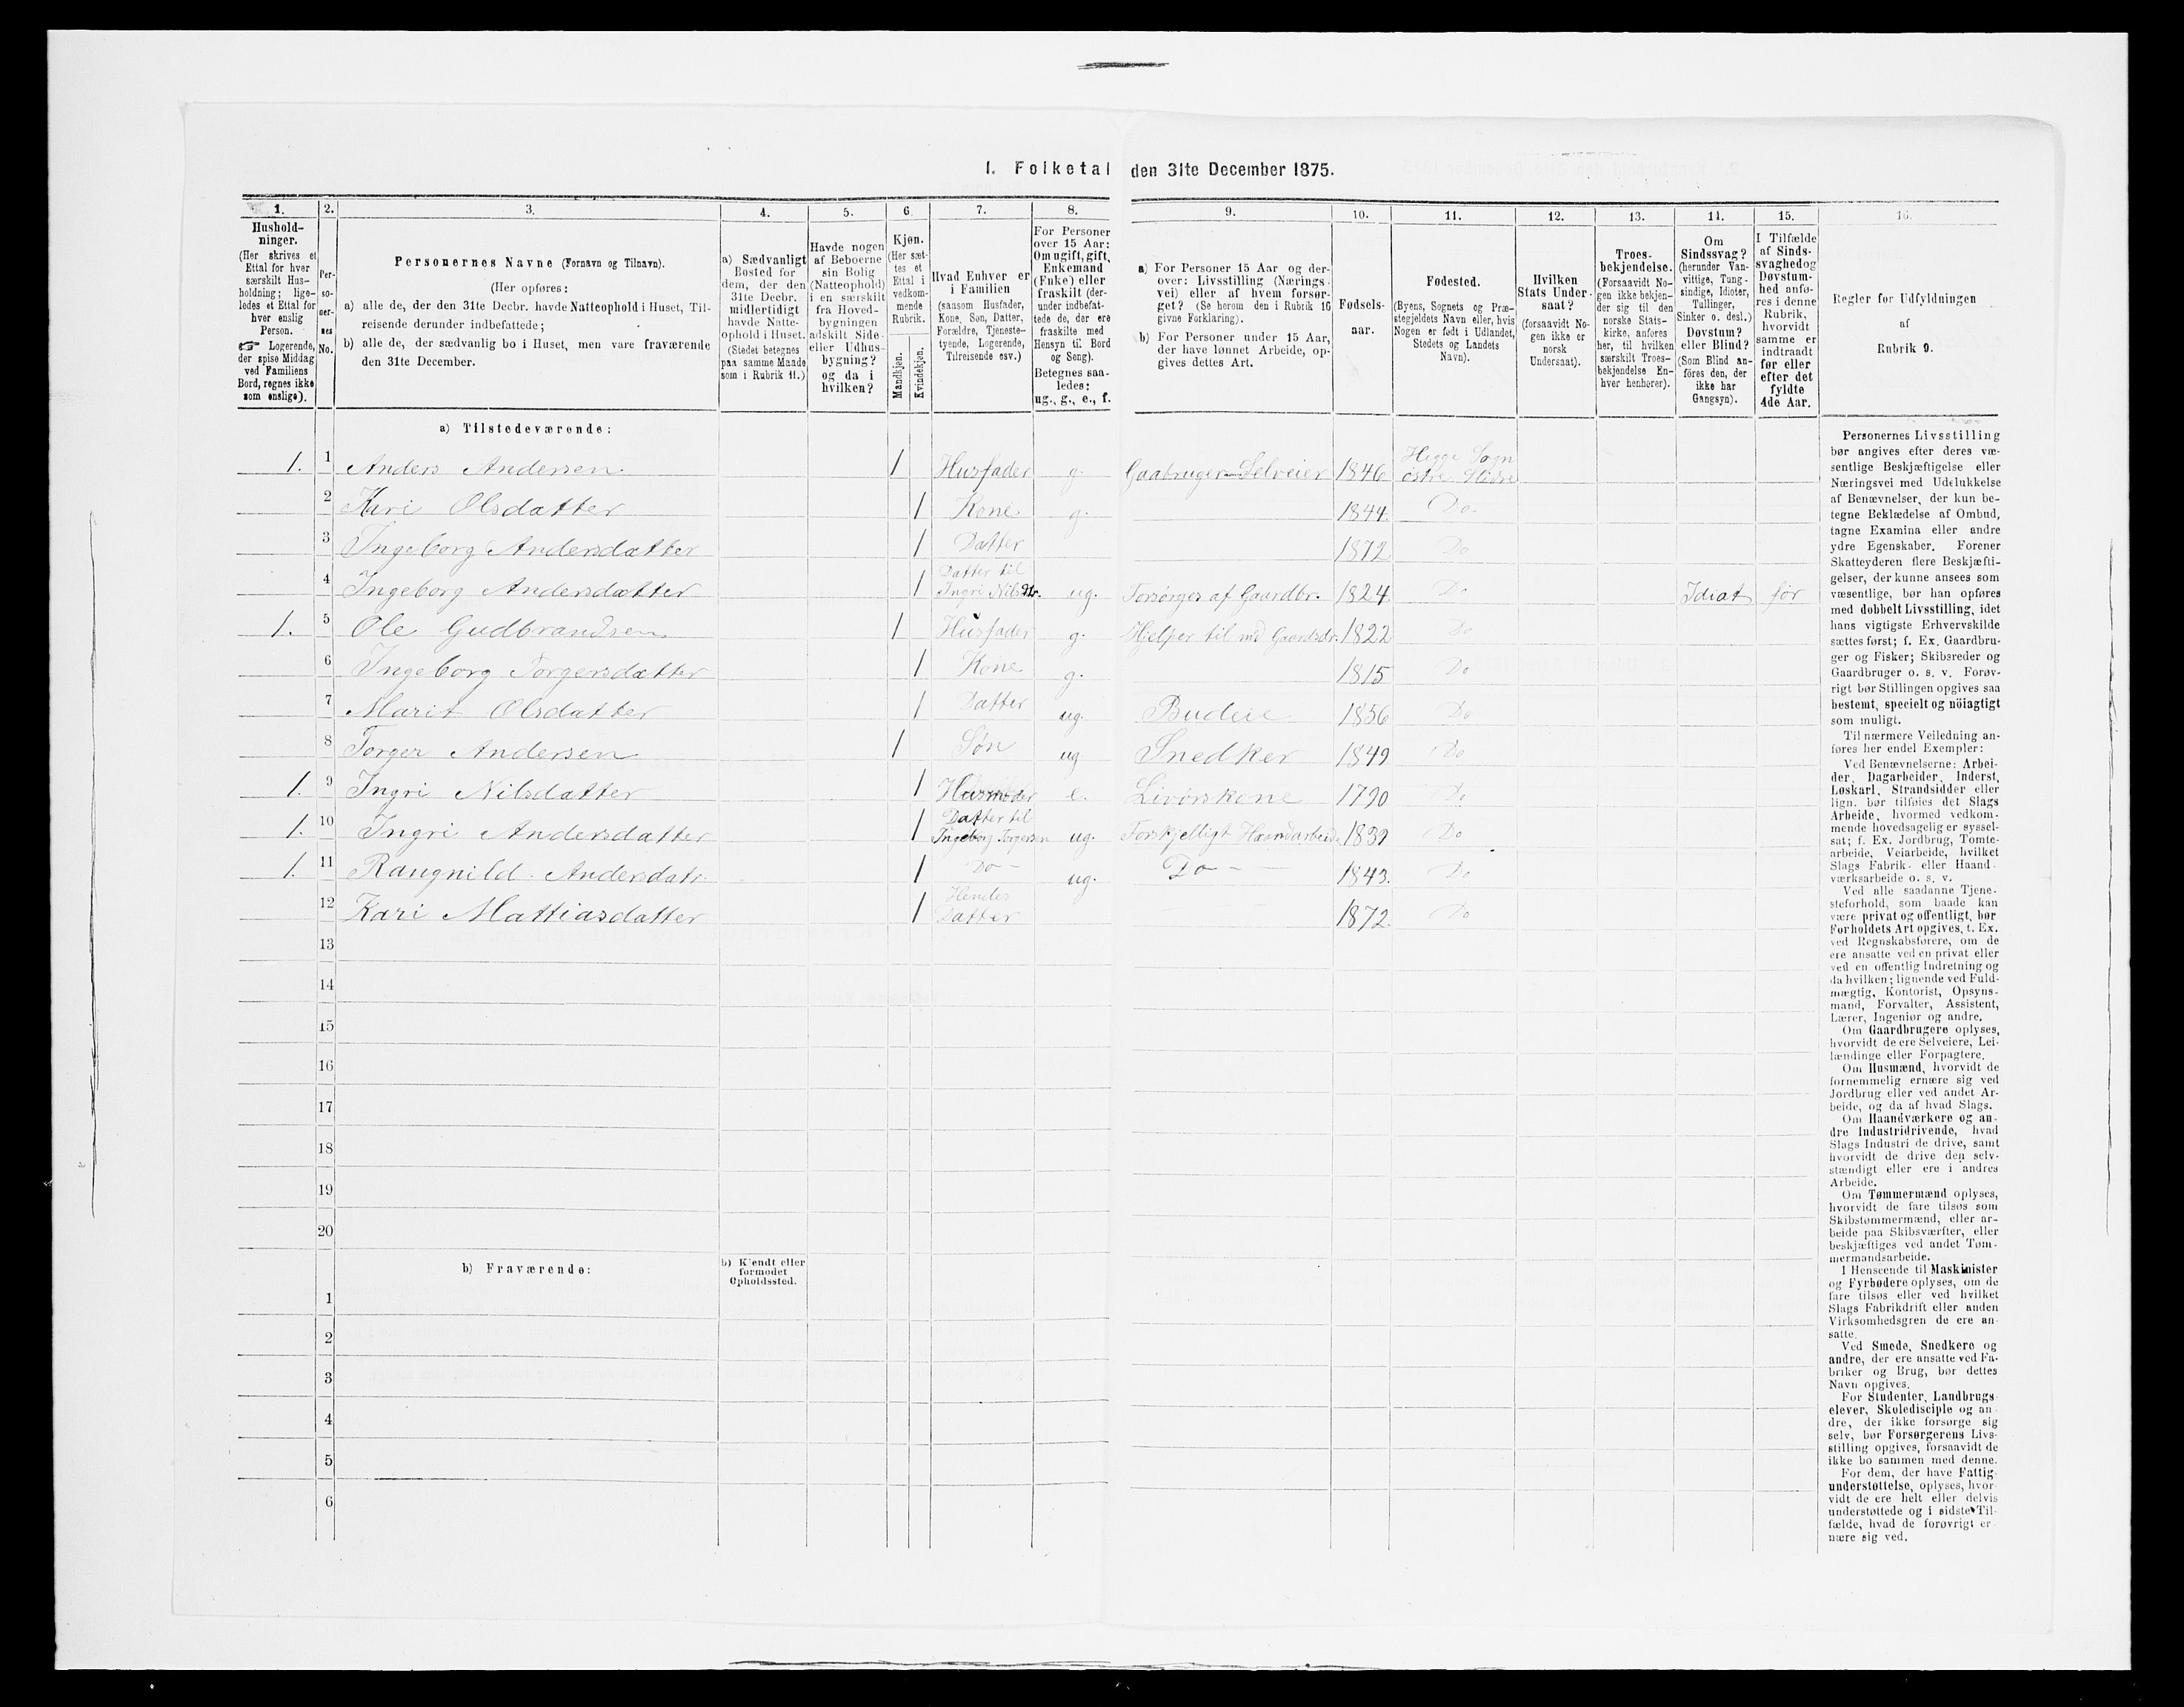 1. Folketal den 31te December 1875.
1. 2. 3. 4. 5. 6. 7. 8. 9. 10. 11. 12. 13. 14. 15. 16.
Hushold-
ninger.
(Her skrives et
Ettal for hver
særskilt Hus-
holdning; lige-
ledes et Ettal for
hver enslig
Person.
☞ Logerende,
der spise Middag
ved Familiens
Bord, regnes ikke
som enslige).
Per-
so-
ner-
nes
No.
Personernes Navne (Fornavn og Tilnavn).
(Her opføres:
a) alle de, der den 31te Decbr. havde Natteophold i Huset, Til-
reisende derunder indbefattede;
b) alle de, der sædvanlig bo i Huset, men vare fraværende
den 31te December.
a) Sædvanligt
Bosted for
dem, der den
31te Decbr.
midlertidigt
havde Natte-
ophold i Huset.
(Stedet betegnes
paa samme Maade
som i Rubrik 11.)
Havde nogen
af Beboerne
sin Bolig
(Natteophold)
i en særskilt
fra Hoved-
bygningen
adskilt Side-
eller Udhus-
bygning?
og da i
hvilken?
Kjøn.
(Her sæt-
tes et
Ettal i
vedkom-
mende
Rubrik.
Mandkjøn.
Kvindekjøn.
Hvad Enhver er
i Familien
(saasom Husfader,
Kone, Søn, Datter,
Forældre, Tjeneste-
tyende, Logerende,
Tilreisende osv.)
For Personer
over 15 Aar:
Om ugift, gift,
Enkemand
(Enke) eller
fraskilt (der-
under indbefat-
tede de, der ere
fraskilte med
Hensyn til Bord
og Seng).
Betegnes saa-
ledes:
ug., g., e., f.
a) For Personer 15 Aar og der-
over: Livsstilling (Nærings-
vei) eller af hvem forsør-
get? (Se herom den i Rubrik 16
givne Forklaring).
b) For Personer under 15 Aar,
der have lønnet Arbeide, op-
gives dettes Art.
Fødsels-
aar.
Fødested.
(Byens, Sognets og Præ-
stegjeldets Navn eller, hvis
Nogen er født i Udlandet,
Stedets og Landets
Navn).
Hvilken
Stats Under-
saat?
(forsaavidt No-
gen ikke er
norsk
Undersaat).
Troes-
bekjendelse.
(Forsaavidt No-
gen ikke bekjen-
der sig til den
norske Stats-
kirke, anføres
her, til hvilken
særskilt Troes-
bekjendelse En-
hver henhører).
Om
Sindssvag?
(herunder Van-
vittige, Tung-
sindige, Idioter,
Tullinger,
Sinker o. desl.)
Døvstum?
eller Blind?
(Som Blind an-
føres den, der
ikke har
Gangsyn).
I Tilfælde
af Sinds-
svaghed og
Døvstum-
hed anfø-
res i denne
Rubrik,
hvorvidt
samme er
indtraadt
før eller
efter det
fyldte
4de Aar.
Regler for Udfyldningen
af
Rubrik 9.
a) Tilstedeværende:
1. 1 Anders Andersen 1 Husfader g. Gaabruger Selveier 1846 Hegge Sogn
østre Slidre
2 Kari Olsdatter 1 Kone g. 1844 Do
3 Ingeborg Andersdatter 1 Datter 1872 Do
4 Ingeborg Andersdatter 1 Datter til
Ingri Nilsdtr. ug. Forsørges af Gaardbr. 1824 Do Idiot før
1. 5 Ole Gudbrandsen 1 Husfader g. Hjelper til md Gaardsdr. 1822 Do
6 Ingeborg Torgersdatter 1 Kone g. 1815 Do
7 Marit Olsdatter 1 Datter ug. Budeie 1856 Do
8 Torger Andersen 1 Søn ug Snedker 1849 Do
1. 9 Ingri Nilsdatter 1 Husmoder e. Livørskone 1790 Do
1. 10 Ingri Andersdatter 1 Datter til
Ingeborg Torgersen ug. Forskjelligt Haandarbeide 1839 Do
1. 11 Raugnild Andersdatr. 1 Do - ug. Do - 1843 Do
12 Kari Mattiasdatter 1 Hendes
Datter 1872 Do
13
14
15
16
17
18
19
20
b) Fraværende:
b) Kjendt eller
formodet
Opholdssted.
1
2
3
4
5
6
Personernes Livsstilling
bør angives efter deres væ-
sentlige Beskjæftigelse eller
Næringsvei med Udelukkelse
af Benævnelser, der kun be-
tegne Beklædelse af Ombud,
tagne Examina eller andre
ydre Egenskaber. Forener
Skatteyderen flere Beskjæfti-
gelser, der kunne ansees som
væsentlige, bør han opføres
med dobbelt Livsstilling, idet
hans vigtigste Erhvervskilde
sættes først; f. Ex. Gaardbru-
ger og Fisker; Skibsreder og
Gaardbruger o. s. v. Forøv-
rigt bør Stillingen opgives saa
bestemt, specielt og nöiagtigt
som muligt.
Til nærmere Veiledning an-
føres her endel Exempler:
Ved Benævnelserne: Arbei-
der, Dagarbeider, Inderst,
Løskarl, Strandsidder eller
lign. bør tilføies det Slags
Arbeide, hvormed vedkom-
mende hovedsagelig er syssel-
sat; f. Ex. Jordbrug, Tomte-
arbeide, Veiarbeide, hvilket
Slags Fabrik- eller Haand-
værksarbeide o. s. v.
Ved alle saadanne Tjene-
steforhold, som baade kan
være privat og offentligt, bør
Forholdets Art opgives, t. Ex.
ved Regnskabsførere, om de
ere ansatte ved en privat eller
ved en offentlig Indretning og
da hvilken; lignende ved Fuld-
mægtig, Kontorist, Opsyns-
mand, Forvalter, Assistent,
Lærer, Ingeniør og andre.
Om Gaardbrugere oplyses,
hvorvidt de ere Selveiere, Lei-
lændinge eller Forpagtere.
Om Husmænd, hvorvidt de
fornemmelig ernære sig ved
Jordbrug eller ved andet Ar-
beide, og da af hvad Slags.
Om Haandværkere og an-
dre Industridrivende, hvad
Slags Industri de drive, samt
hvorvidt de drive den selv-
stændigt eller ere i andres
Arbeide.
Om Tømmermænd oplyses,
hvorvidt de fare tilsøs som
Skibstømmermænd, eller ar-
beide paa Skibsværfter, eller
beskjæftiges ved andet Tøm-
mermandsarbeide.
I Henseende til Maskinister
og Fyrbødere oplyses, om de
fare tilsøs eller ved hvilket
Slags Fabrikdrift eller anden
Virksomhedsgren de ere an-
satte.
Ved Smede, Snedkere og
andre, der ere ansatte ved Fa-
briker og Brug, bør dettes
Navn opgives.
For Studenter, Landbrugs-
elever, Skoledisciple og an-
dre, der ikke forsørge sig
selv, bør Forsørgerens Livs-
stilling opgives, forsaavidt de
ikke bo sammen med denne.
For dem, der have Fattig-
understøttelse, oplyses, hvor-
vidt de ere helt eller delvis
understøttede og i sidste Til-
fælde, hvad de forøvrigt er-
nære sig ved.